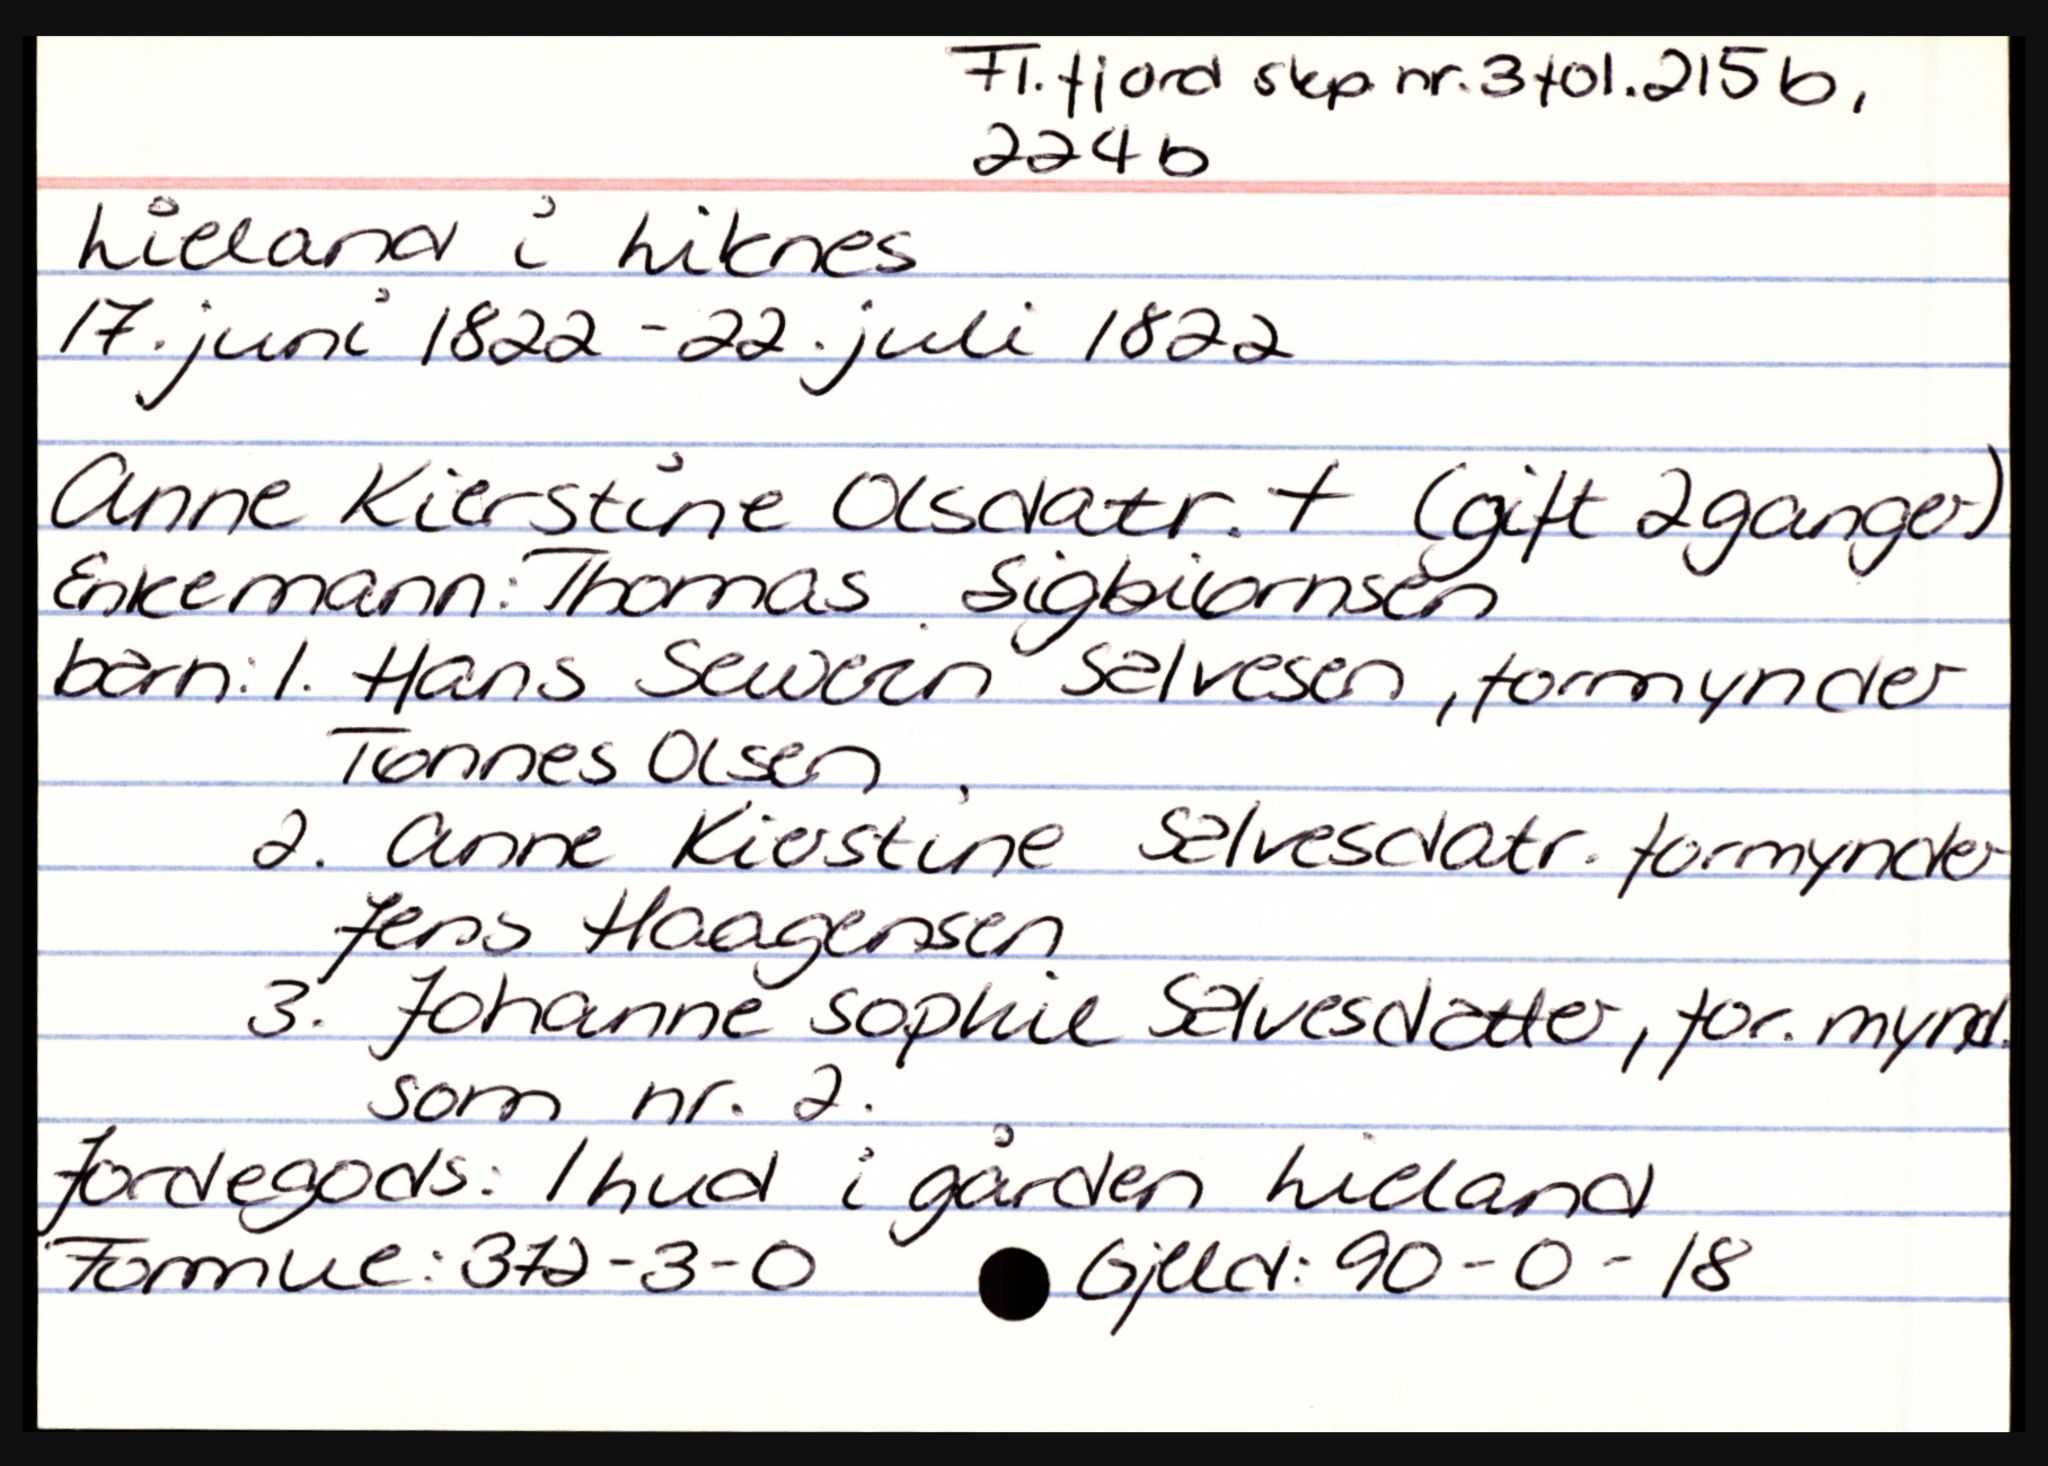 Fl.fjord skp nr.3 fol.215b,
224b
Lieland i Liknes
17. juni 1822 - 22. juli 1822
Anne Kierstine Olsdatr. † (gift 2 ganger)
Enkemann: Thomas Sigbiørnsen
barn: 1. Hans Sewerin Salvesen, formynder
Tønnes Olsen
2. Anne Kierstine Salvesdatr. formynder
Jens Haagensen
3. Johanne Sophie Salvesdatter, for.mynd.
som nr. 2.
Jordegods: 1 hud i gården Lieland
Formue: 372-3-0 Gjeld: 90-0-18